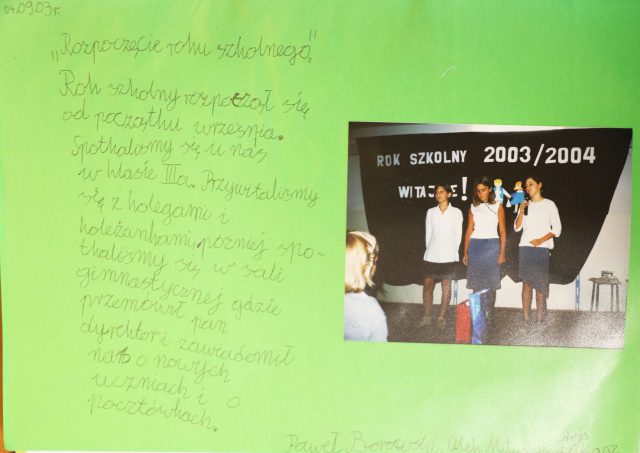 04.09.03r.
„Rozpoczęcie roku szkolnego."
Rok szkolny rozpoczął się
od początku września.
Spotkaliśmy się u nas
w klasie IIIa. Przywitaliśmy
się z kolegami i
koleżankami, później spo-
tkaliśmy się w sali
gimnastycznej gdzie
przemówił pan
dyrektor i zawiadomił
nas o nowych
uczniach i o
pocztówkach.
ROK SZKOLNY 2003/2004
WITAJCIE!
Paweł Borowski